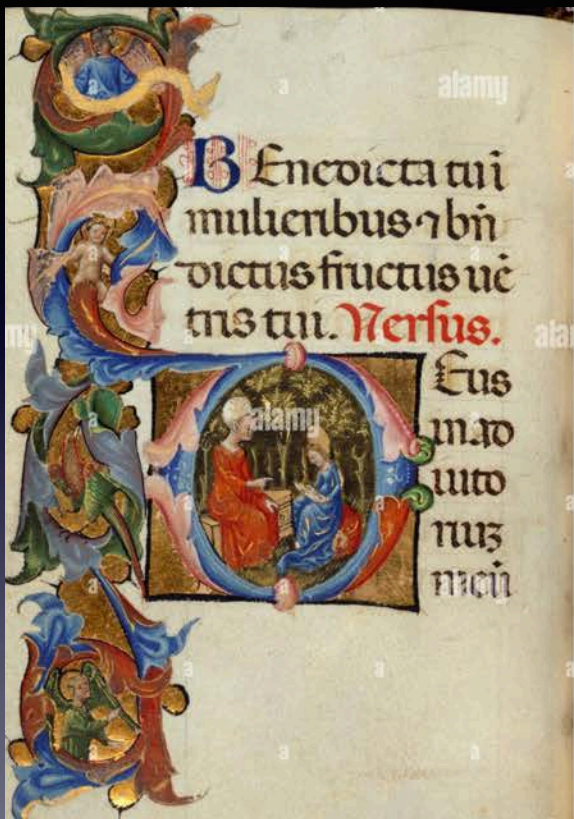 alamy
BEnedicta tu ī
mulieribus ⁊ bn̄
dictus fructus uē
tris tui. Versus.
DEus
in ad
alamy
iuto
riuz
meū